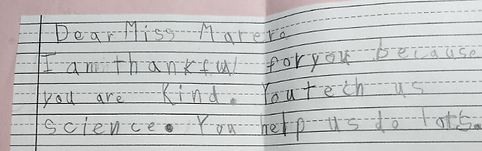 Dear Miss Marero
I am thankful for you because
you are kind. You tech us
science. You help us do lots.